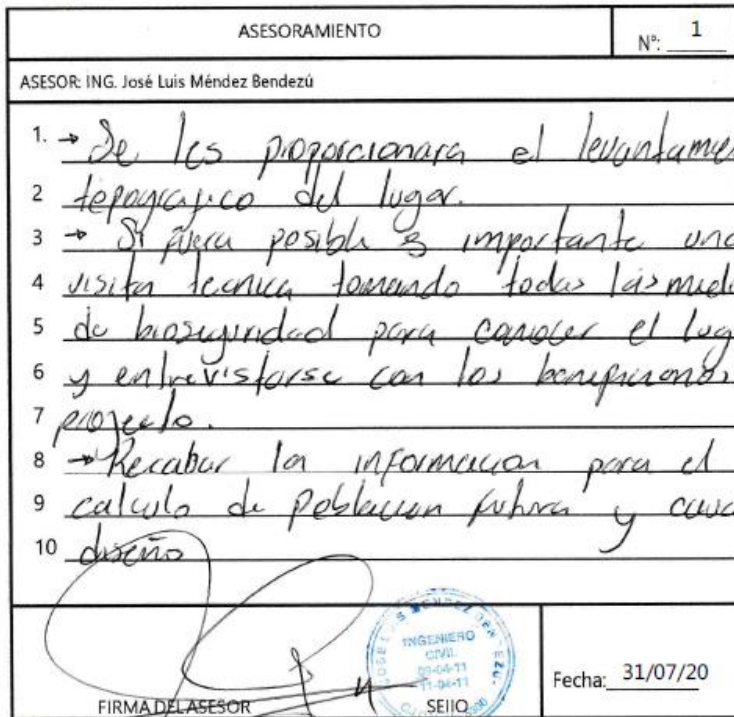 ASESORAMIENTO
N°: 1
ASESOR: ING. José Luis Méndez Bendezú
1. → Se les proporcionara el levantamie
2 topografico del lugar.
3 → Si fuera posible es importante una
4 visita tecnica tomando todas las medi
5 de bioseguridad para conocer el lug
6 y entrevistarse con los beneficiarios
7 proyecto.
8 → Recabar la informacion para el
9 calculo de poblacion futura y cau
10 diseño
INGENIERO
CIVIL
FIRMA DEL ASESOR
SELLO
Fecha: 31/07/20